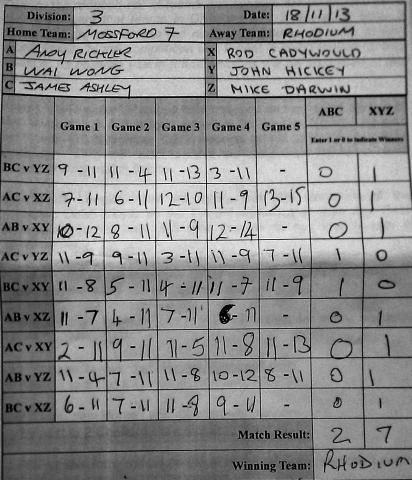 Division: 3 Date: 18/11/13
Home Team: MOSSFORD 7 Away Team: RHODIUM
A ANDY RICHLER X ROD CADYWOULD
B WAI WONG Y JOHN HICKEY
C JAMES ASHLEY Z MIKE DARWIN
ABC XYZ
Game 1 Game 2 Game 3 Game 4 Game 5 Enter 1 or 0 to indicate Winners
BC v YZ 9-11 11-4 11-13 3-11 - 0 1
AC v XZ 7-11 6-11 12-10 11-9 13-15 0 1
AB v XY 10-12 8-11 11-9 12-14 - 0 1
AC v YZ 11-9 9-11 3-11 11-9 7-11 1 0
BC v XY 11-8 5-11 4-11 11-7 11-9 1 0
AB v XZ 11-7 4-11 7-11 6-11 - 0 1
AC v XY 2-11 9-11 11-5 11-8 11-13 0 1
AB v YZ 11-4 7-11 11-8 10-12 8-11 0 1
BC v XZ 6-11 7-11 11-8 9-11 - 0 1
Match Result: 2 7
Winning Team: RHODIUM